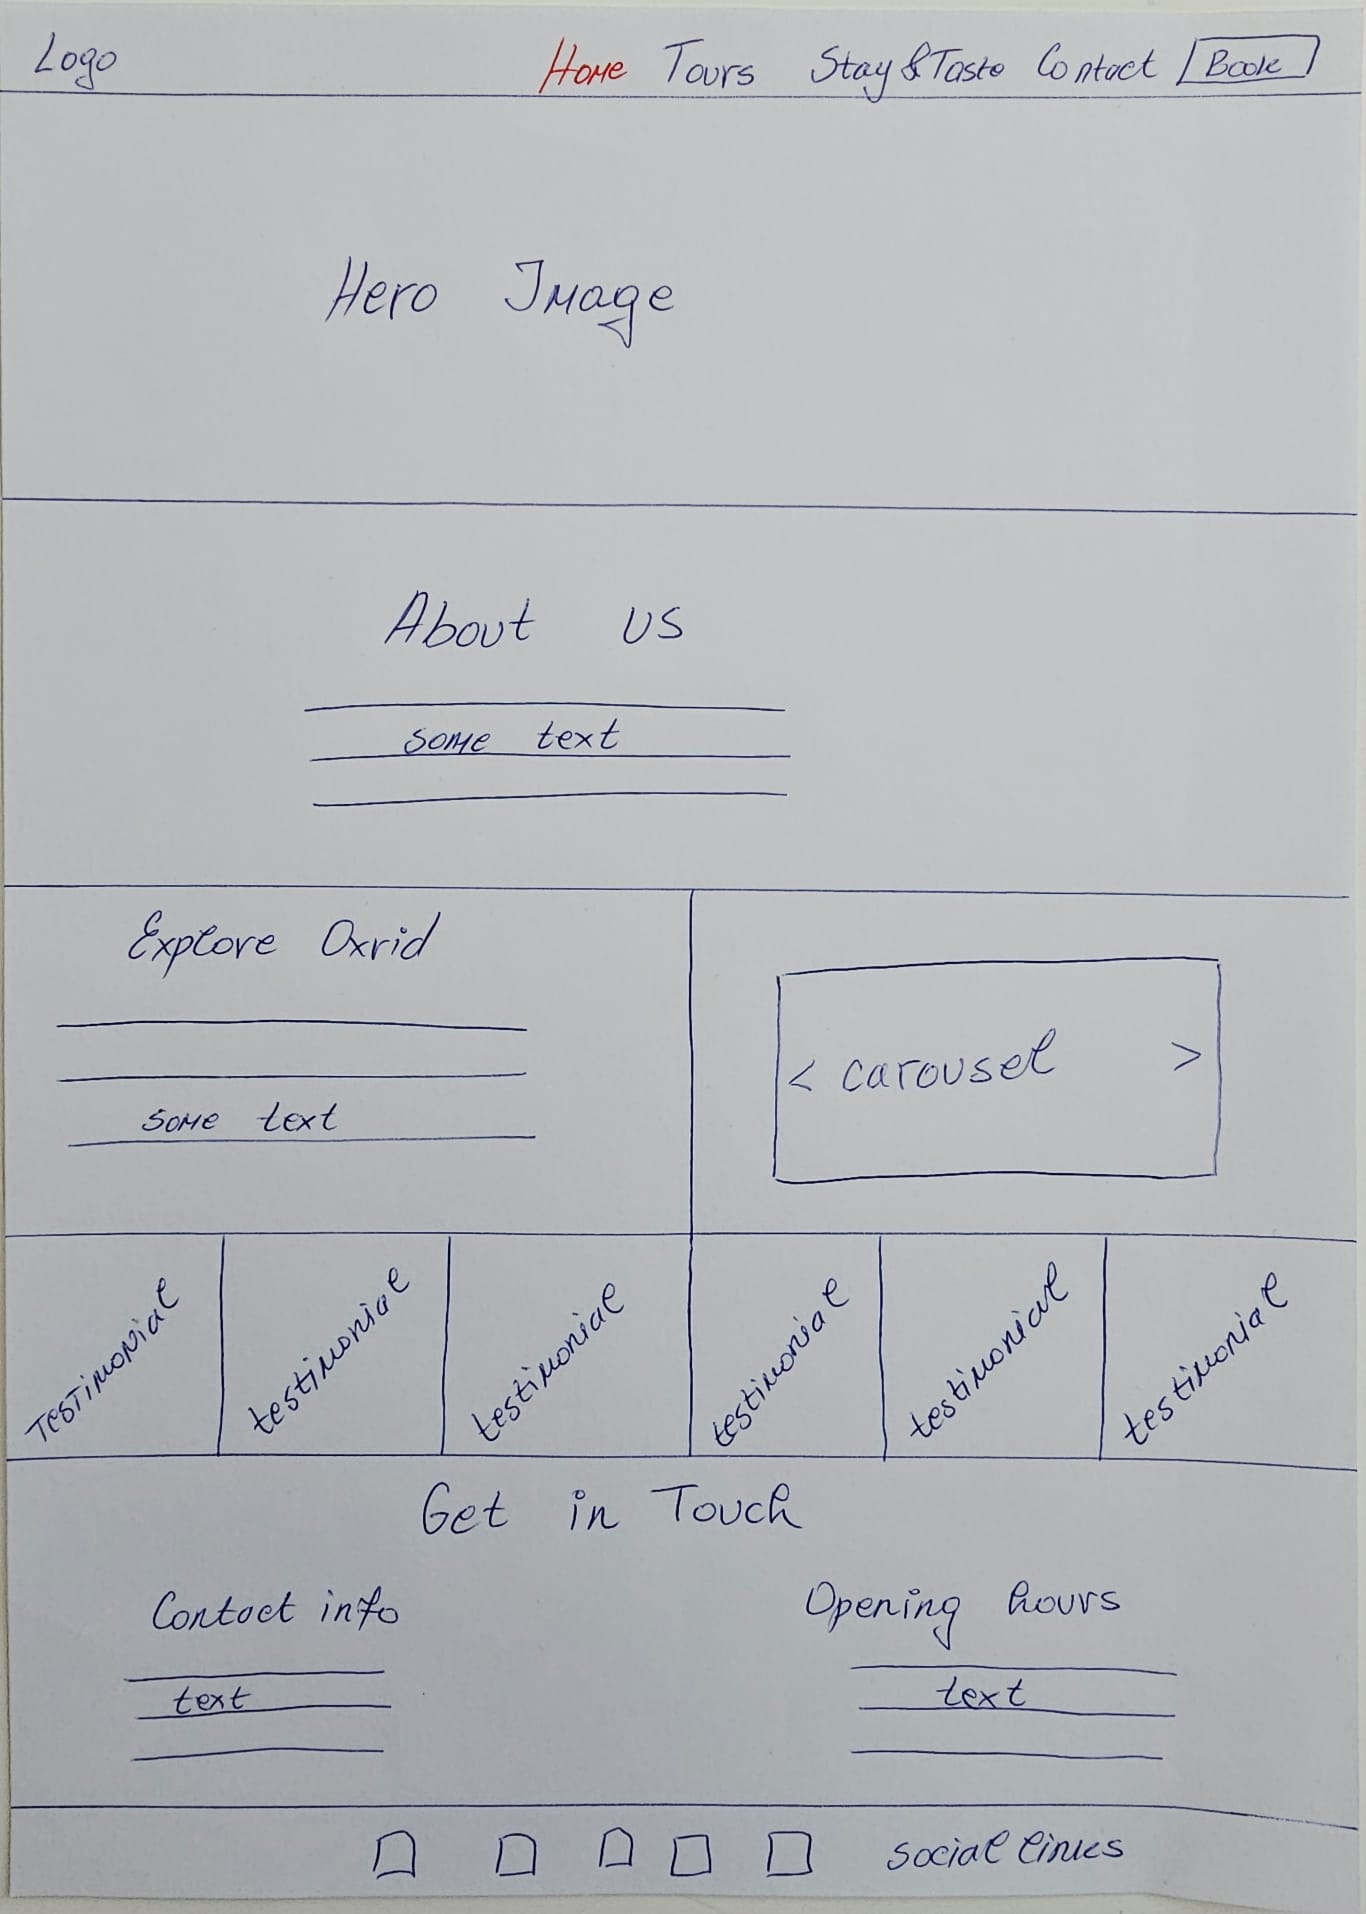 Logo Home Tours Stay & Taste Contact Book
Hero Image
About us
some text
Explore Oxrid
some text
< carousel >
Testimonial testimonial testimonial testimonial testimonial testimonial
Get in Touch
Contact info Opening hours
text text
social links